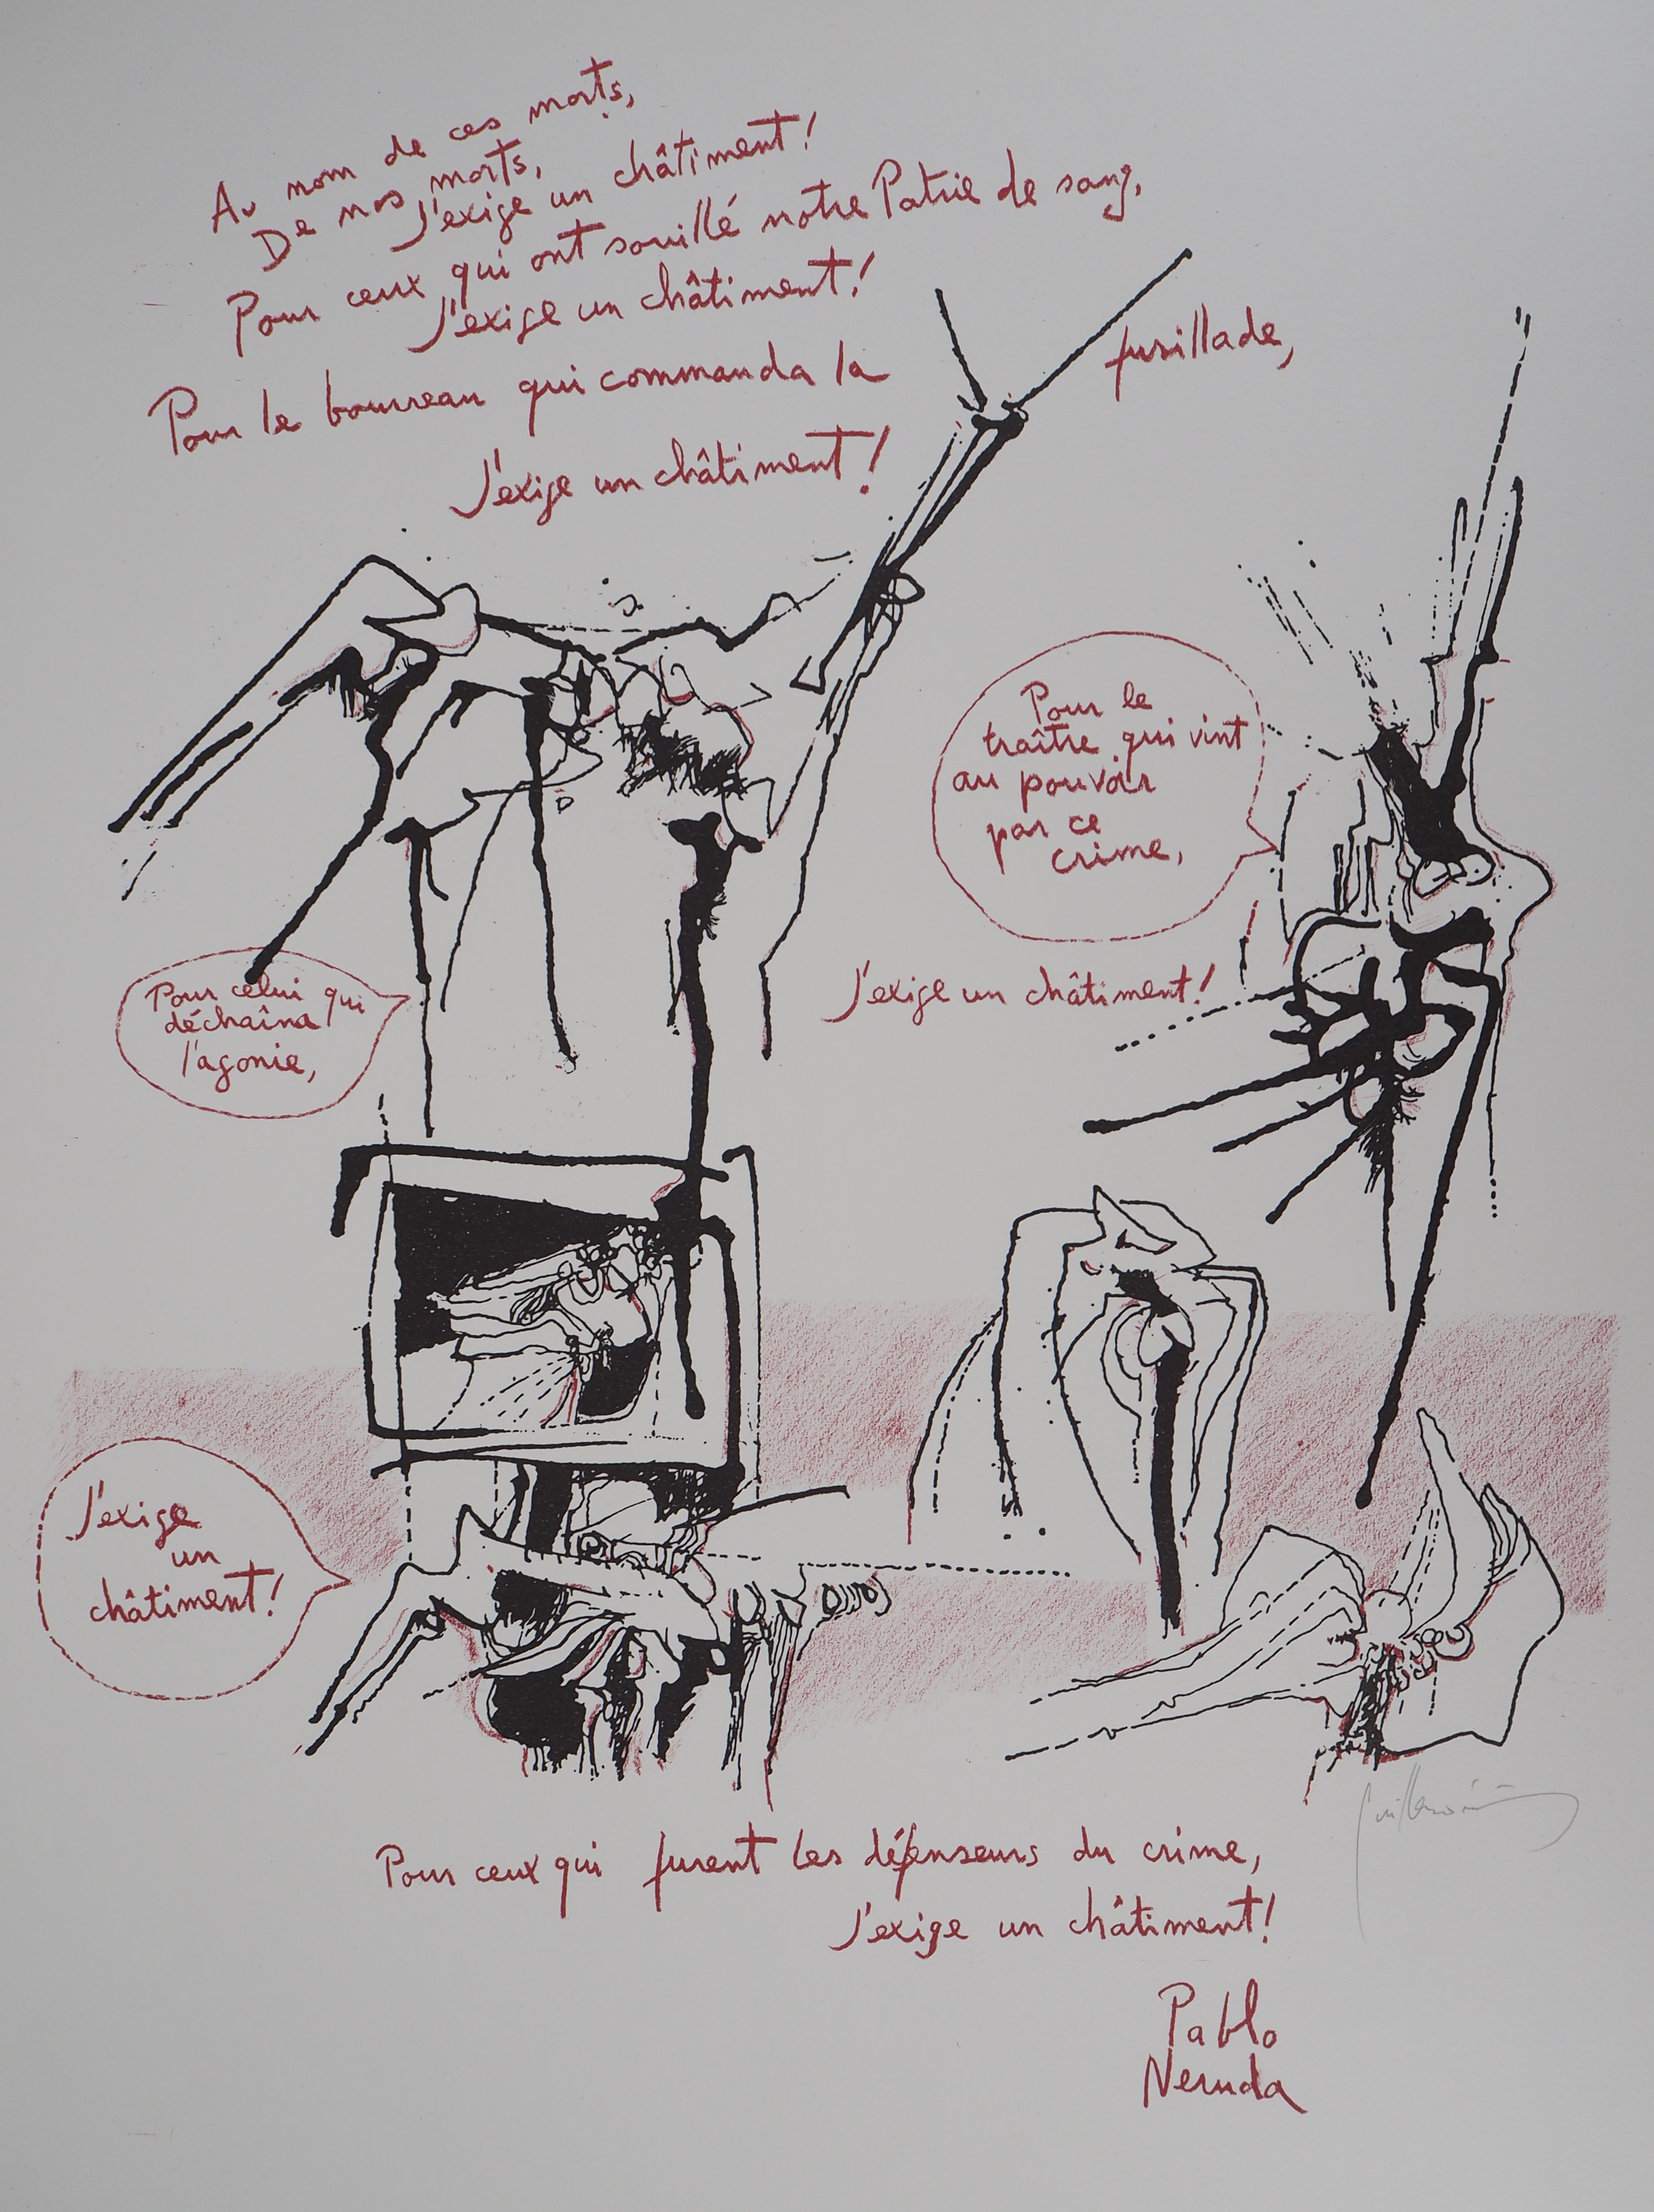 Au nom de ces morts,
De nos morts,
J'exige un châtiment!
Pour ceux qui ont souillé notre Patrie de sang,
J'exige un châtiment!
Pour le bourreau qui commanda la fusillade,
J'exige un châtiment!
Pour le
traître qui vint
au pouvoir
par ce
crime,
J'exige un châtiment!
Pour celui qui
déchaîna
l'agonie,
J'exige
un
châtiment!
Pour ceux qui furent les défenseurs du crime,
J'exige un châtiment!
Pablo
Neruda